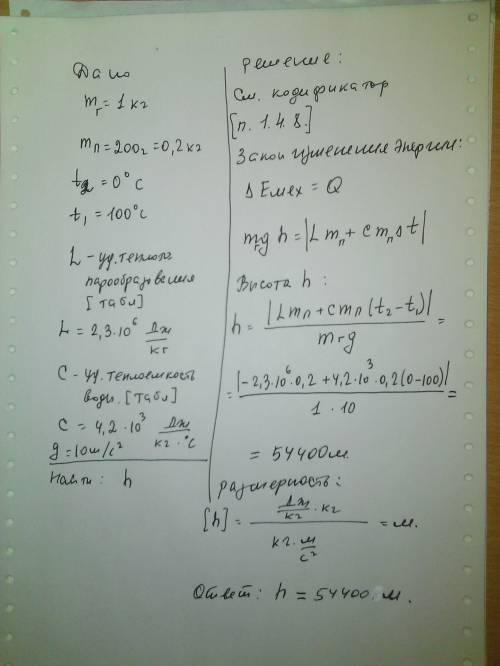 Дано
mг = 1 кг
mп = 200г = 0,2 кг
t2 = 0°C
t1 = 100°C
L - уд. теплота
парообразования
[табл]
L = 2,3·10⁶ Дж/кг
C - уд. теплоемкость
воды. [табл]
C = 4,2·10³ Дж/кг·°C
g = 10 м/с²
Найти: h
Решение:
См. кодификатор
[п. 1.4.8.]
Закон изменения энергии:
ΔEмех = Q
mгg h = |Lmп + cmпΔt|
Высота h:
h = |Lmп + cmп(t2 - t1)| / mгg =
= |-2,3·10⁶·0,2 + 4,2·10³·0,2(0-100)| / 1·10 =
= 54400 м.
Размерность:
[h] = Дж/кг · кг / кг · м/с² = м.
Ответ: h = 54400 м.